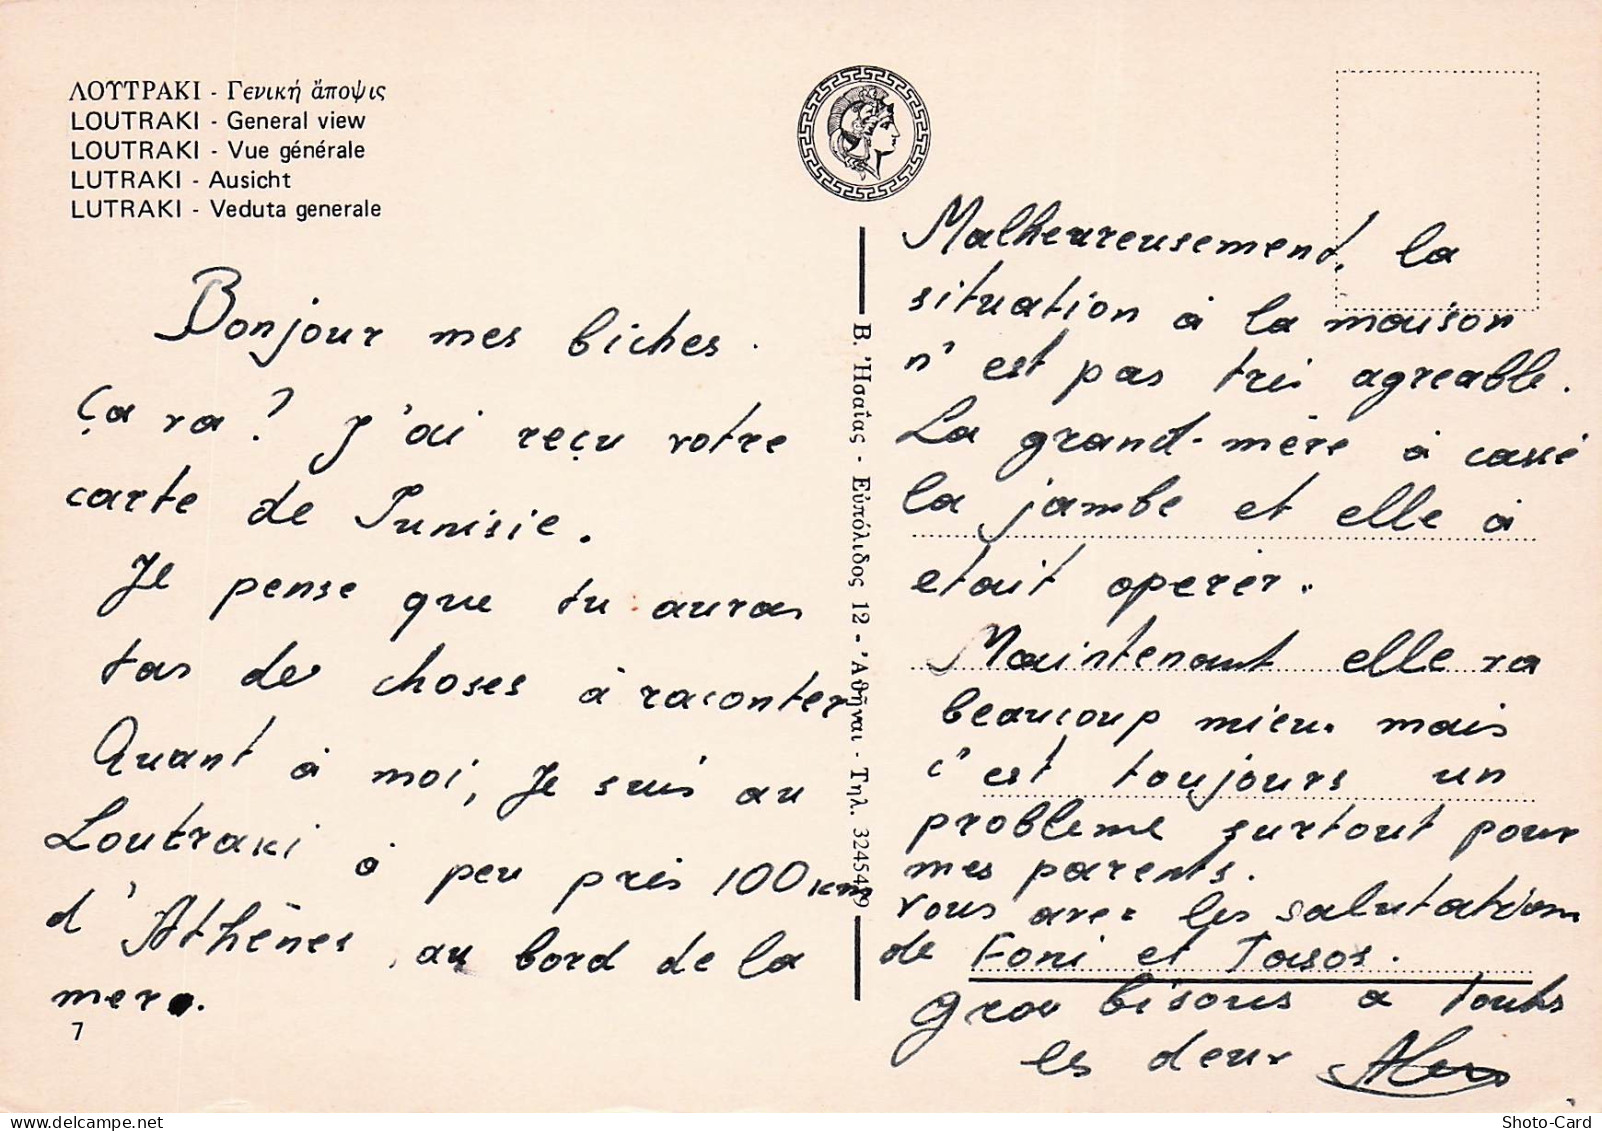 ΛΟΥΤΡΑΚΙ - Γενική ἄποψις
LOUTRAKI - General view
LOUTRAKI - Vue générale
LUTRAKI - Ausicht
LUTRAKI - Veduta generale
Bonjour mes biches.
ça va? J'ai reçu votre
carte de Tunisie.
Je pense que tu auras
tas de choses à raconter
Quant à moi, Je suis au
Loutraki à peu près 100 km
d'Athènes, au bord de la
mer.
7
Β. Ἠσαΐας - Εὐπόλιδος 12 - Ἀθῆναι - Τηλ. 3245419
Malheureusement, la
situation à la maison
n'est pas très agreable.
La grand-mère à cassé
la jambe et elle à
etait operer..
Maintenant elle va
beaucoup mieu. mais
c'est toujours un
probleme surtout pour
mes parents.
vous avez les salutations
de Foni et Tasos.
gros bisous a touts
les deux
Shoto-Card